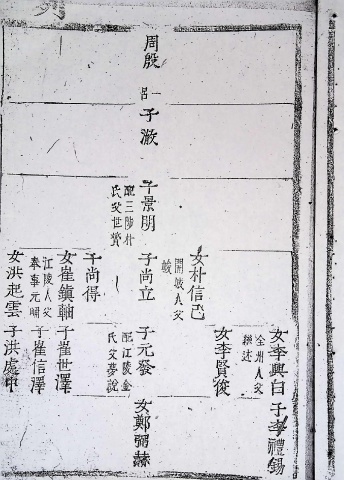 周殷
子
子景明
配三陟朴
氏父世贊
女朴信己
開城人父
子尚立
子尚得
女崔鎮軸
江陵人父
奉事元明
女洪起雲
女李興白
全州人父
繼述
女李賢俊
子元發
配江陵金
氏父夢說
子崔世澤
子崔信澤
子洪處中
子李禮錫
女鄭弼赫